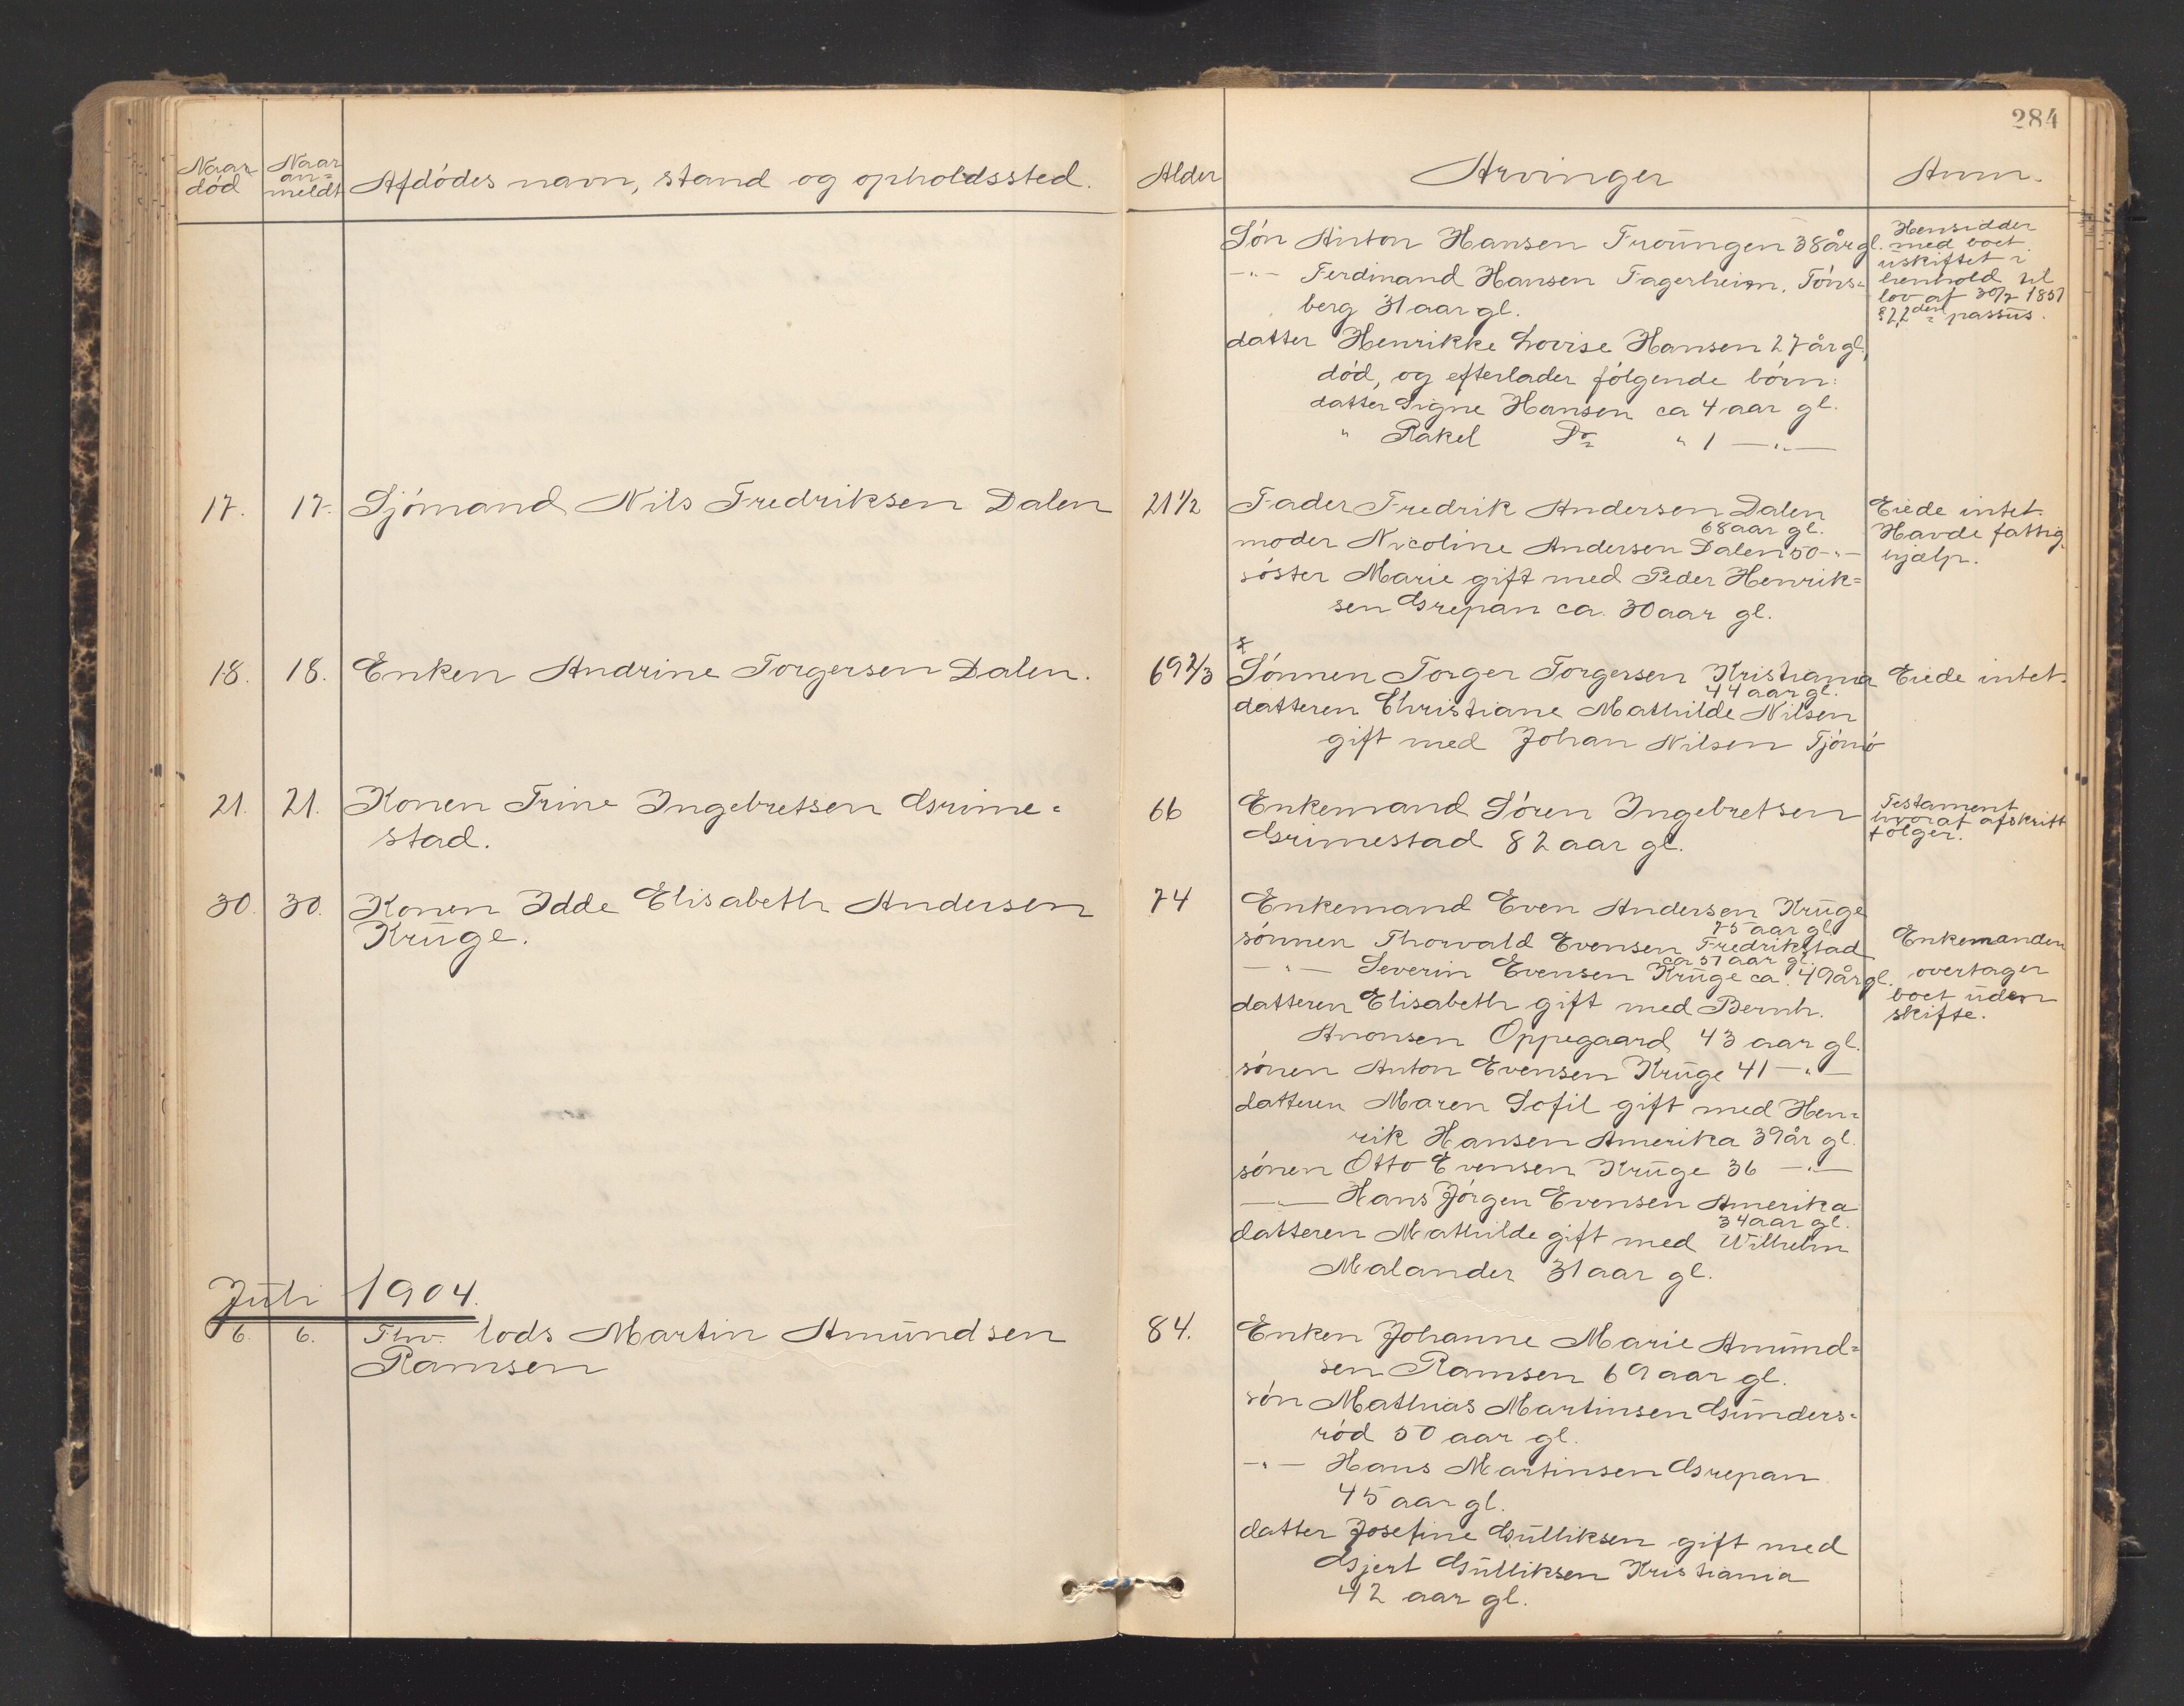 284
Naar død
Naar an= meldt
Afdødes navn, stand og opholdssted.
Alder
Arvinger
Anm.
Søn Anton Hansen Froüngen 38 år gl.
—„— Ferdinand Hansen Fagerheim, Tøns=
berg 31 aar gl.
datter Henrikke Lovise Hansen 27 år gl,
død, og efterlader følgende børn:
datter Signe Hansen ca 4 aar gl.
" Rakel Do " 1 —„—
Hensidder
med boet
üskiftet i
henhold til
lov af 30/7 1851
§ 2, 2den passüs.
17. 17. Sjømand Nils Fredriksen Dalen
21 1/2
Fader Fredrik Andersen Dalen
68 aar gl.
moder Nicoline Andersen Dalen 50 -„-
søster Marie gift med Peder Henrik=
sen Grepan ca. 30 aar gl.
Eiede intet.
Havde fattig
hjælp.
18. 18. Enken Andrine Torgersen Dalen.
69 2/3
Sønnen Torger Torgersen Kristiania
44 aar gl.
datteren Christiane Mathilde Nilsen
gift med Johan Nilsen Tjømø
Eiede intet.
21. 21. Konen Trine Ingebretsen Grime=
stad.
66
Enkemand Søren Ingebretsen
Grimestad 82 aar gl.
Testament
hvoraf afskrift
følger.
30. 30. Konen Idde Elisabeth Andersen
Krüge.
74
Enkemand Even Andersen Krüge
75 aar gl
sønnen Thorvald Evensen Fredrikstad
ca 51 aar gl.
—„— Severin Evensen Krüge ca. 49 år gl.
datteren Elisabeth gift med Bernh.
Anonsen Oppegaard 43 aar gl.
sønen Anton Evensen Krüge 41 —„—
datteren Maren Sofie gift med Hen=
rik Hansen Amerika 39 år gl.
sønen Otto Evensen Krüge 36 —„—
—„— Hans Jørgen Evensen Amerika
34 aar gl.
datteren Mathilde gift med Wilhelm
Malander 31 aar gl.
Enkemanden
overtager
boet üden
skifte.
Jüli 1904.
6. 6. Fhv. lods Martin Amündsen
Ramsen
84.
Enken Johanne Marie Amünd=
sen Ramsen 69 aar gl.
søn Mathias Martinsen Günders=
rød 50 aar gl.
-„- Hans Martinsen Grepan
45 aar gl.
datter Josefine Gülliksen gift med
Gjert Gülliksen Kristiania
42 aar gl.